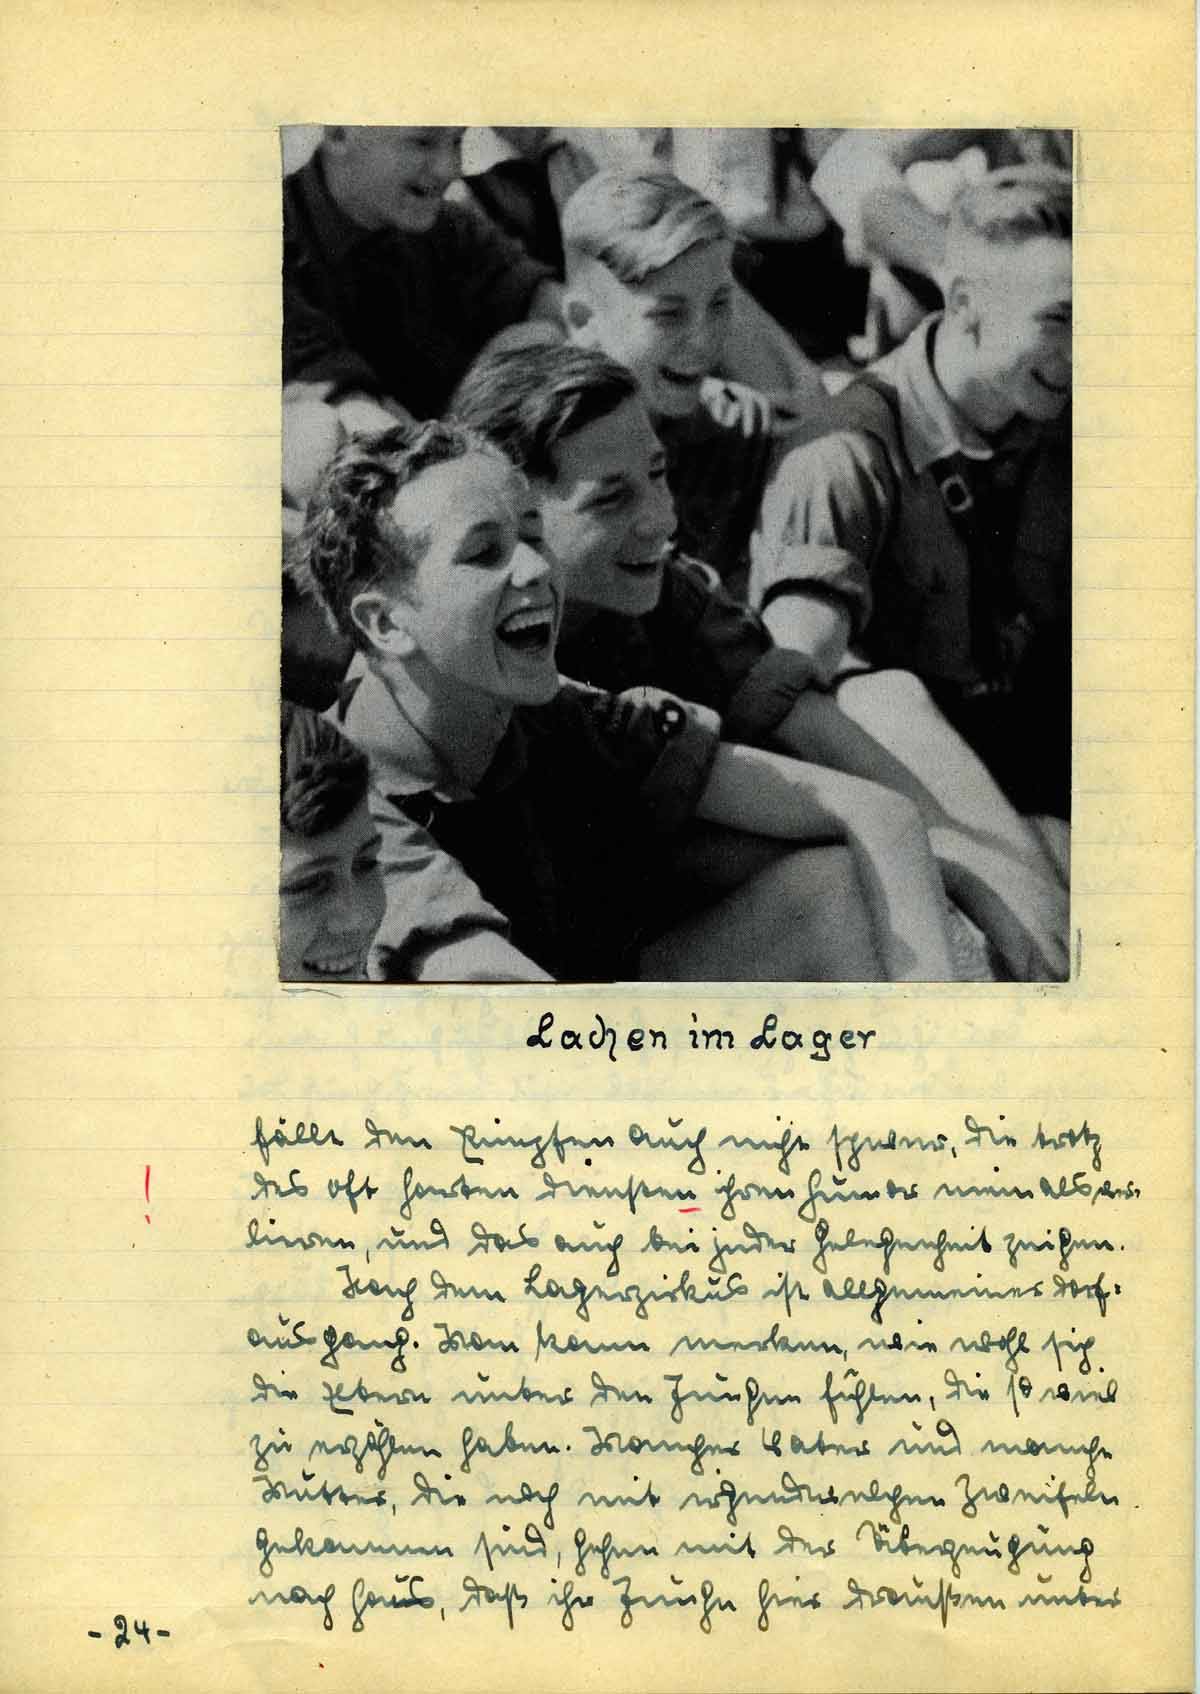 Lachen im Lager
fällt den Pimpfen auch nicht schwer, die trotz
des oft harten Diensten ihren Humor niemals ver=
lieren, und das auch bei jeder Gelegenheit zeigen.
Nach dem Lagerzirkus ist allgemeiner Dorf=
ausgang. Man kann merken, wie wohl sich
die Eltern unter den Jungen fühlen, die so viel
zu erzählen haben. Mancher Vater und manche
Mutter, die noch mit irgendwelchen Zweifeln
gekommen sind, gehen mit der Überzeugung
nach Haus, daß ihr Junge hier draußen unter
-24-